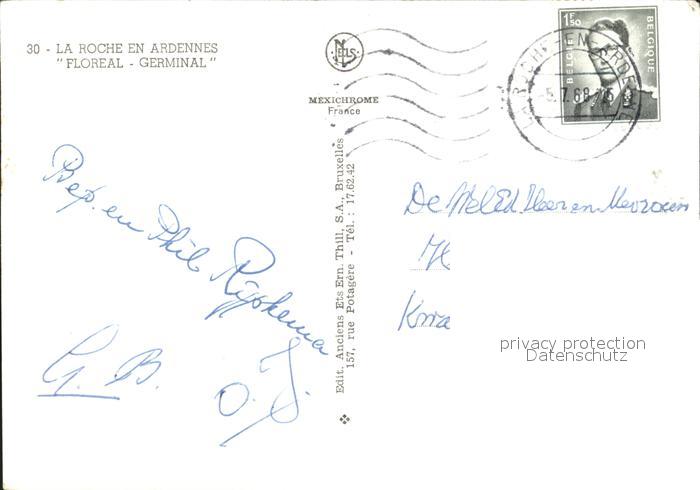 30 - LA ROCHE EN ARDENNES
"FLOREAL - GERMINAL"
NELS
MEXICHROME
France
Edit. Anciens Ets Ern. Thill, S.A., Bruxelles
157, rue Potagère - Tél. : 17.62.42
1F50
BELGIE
BELGIQUE
LA ROCHE-EN-ARDENNE
-5.7.68
Bep. en Phil Rijpkema
G. B.
O.
De WelEd Heer en Mevrouw
privacy protection
Datenschutz